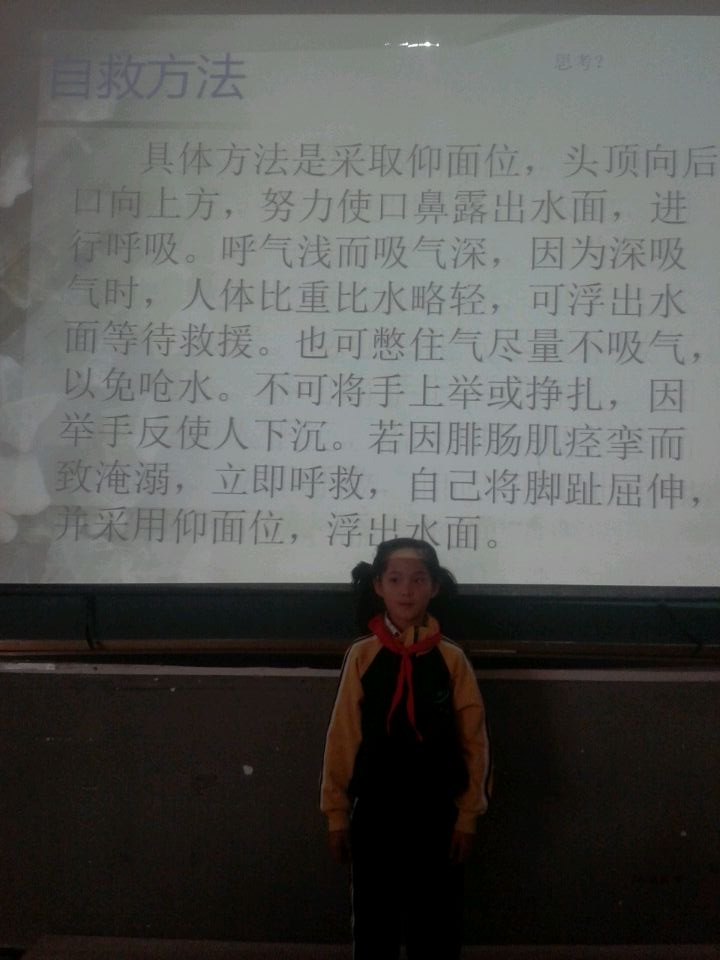 自救方法
思考？
具体方法是采取仰面位，头顶向后
口向上方，努力使口鼻露出水面，进
行呼吸。呼气浅而吸气深，因为深吸
气时，人体比重比水略轻，可浮出水
面等待救援。也可憋住气尽量不吸气，
以免呛水。不可将手上举或挣扎，因
举手反使人下沉。若因腓肠肌痉挛而
致淹溺，立即呼救，自己将脚趾屈伸，
并采用仰面位，浮出水面。